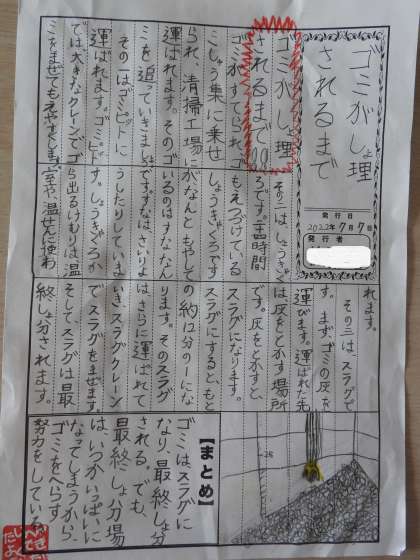 ゴミがしょ理
されるまで
発行日
2022年7月7日
発行者
ゴミがしょ理
されるまで!!
ゴミがすてられ、ゴ
ミしゅう集に乗せ
られ、清掃工場に
運ばれます。そのゴ
ミを追っていきましょ
その一はゴミピットに
運ばれます。ゴミピット
では大きなクレーンでゴ
ミをまぜてもえやすくします。
その二は、しょうきゃく
ろです。二十四時間
もえつづけている
しょうきゃくろです
がなんともやして
いるのはすななん
です。すなは、さいりよ
うしたりしていま
す。しょうきゃくろか
ら出るけむりは温
室や温せんに使わ
れます。
その三は、スラグで
す。まずゴミの灰を
運びます。運ばれた先
は灰をとかす場所
です。灰をとかすと、
スラグになります。
スラグにするともと
の約12分の一にな
ります。そのスラグ
はさらに運ばれて
いき、スラグクレーン
でスラグをまぜます。
そして、スラグは最
終しょ分されます。
【まとめ】
ゴミはスラグに
なり、最終しょ分
される。でも、
最終しょ分場
は、いつかいっぱいに
なってしまうから、
ゴミをへらす
努力をしていき